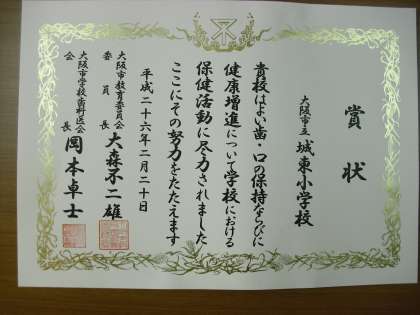 賞状
大阪市立 城東小学校
貴校はよい歯・口の保持ならびに
健康増進について学校における
保健活動に尽力されました
ここにその努力をたたえます
平成二十六年二月二十日
大阪市教育委員会
委員長 大森不二雄
大阪市学校歯科医会
会長 岡本卓士